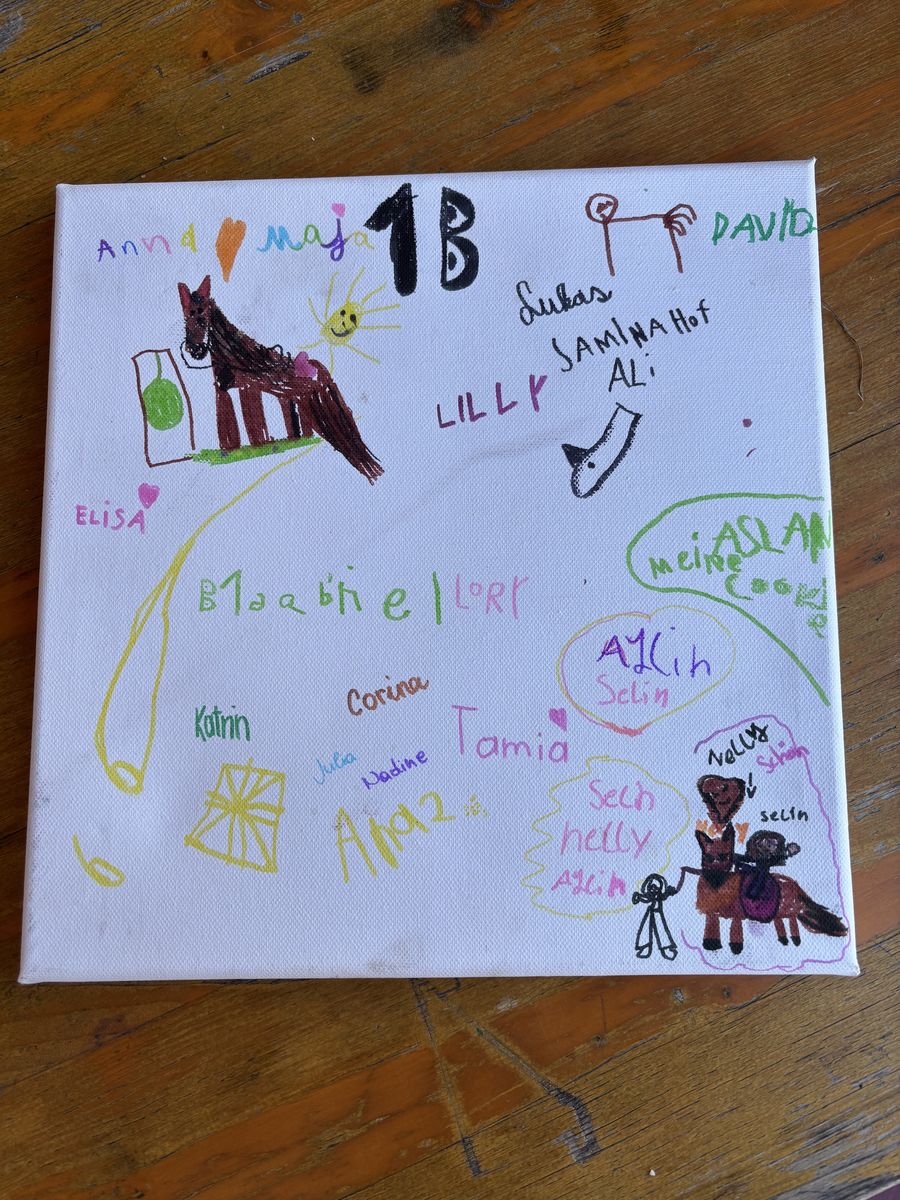 Anna maja 1B
DAVID
Lukas
SAMINA Hof
ALi
LILLY
ELiSA
ASLAN
Meine
LORY
AYLin
Selin
Corina
Katrin
Tamia
Julia
Nadine
Nelly
selin
Selin
nelly
AYLin